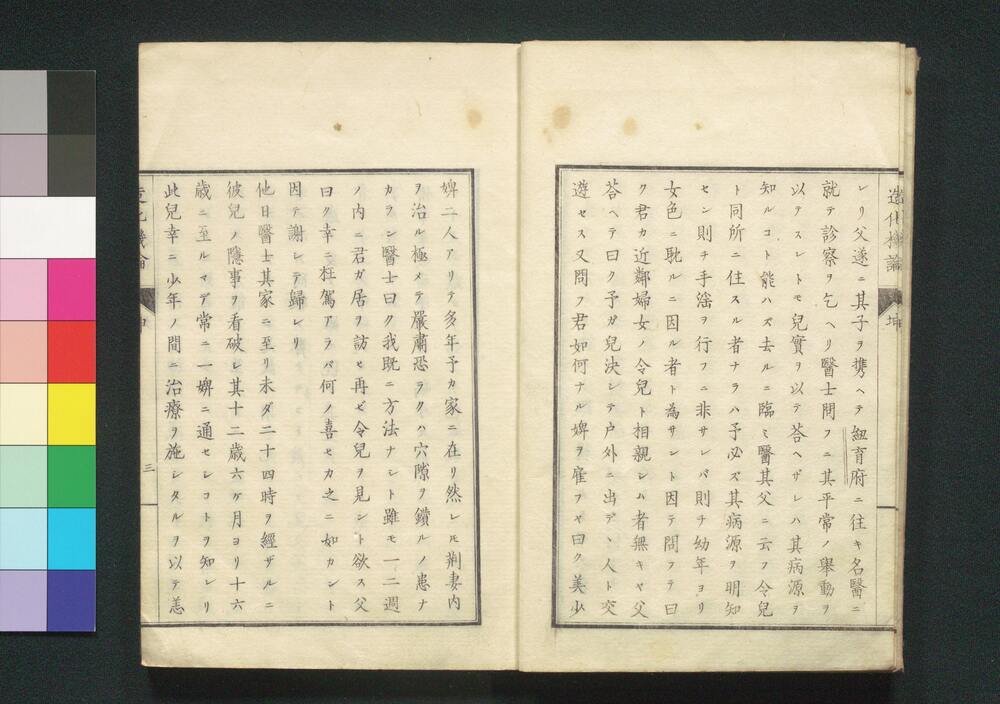 造化機論 坤
レリ父遂ニ其子ヲ携ヘテ紐育府ニ往キ名醫ニ
就テ診察ヲ乞ヘリ醫士問フニ其平常ノ舉動ヲ
以テスレトモ兒實ヲ以テ答ヘザレハ其病源ヲ
知ルコト能ハズ去ルニ臨ミ醫其父ニ云フ令兒
ト同所ニ住スル者ナラハ予必ズ其病源ヲ明知
セン則チ手淫ヲ行フニ非サレバ則チ幼年ヨリ
女色ニ耽ルニ因ル者ト為サント因テ問フテ曰
ク君カ近鄰婦女ノ令兒ト相親シハ者無キヤ父
荅ヘテ曰ク予ガ兒決レテ户外ニ出デヽ人ト交
遊セス又問フ君如何ナル婢ヲ雇フヤ曰ク美少
婢二人アリテ多年予カ家ニ在リ然レモ荊妻内
ヲ治ル極メテ嚴肅恐ラクハ穴隙ヲ鑚ルノ患ナ
カラン醫士曰ク我既ニ方法ナシト雖モ一二週
ノ内ニ君ガ居ヲ訪セ再ビ令兒ヲ見ント欲ス父
曰ク幸ニ枉駕アラバ何ノ喜セカ之ニ如カント
因テ謝レテ歸レリ
他日醫士其家ニ至リ未ダ二十四時ヲ經ザルニ
彼兒ノ隱事ヲ看破レ其十二歳六ケ月ヨリ十六
歳ニ至ルマデ常ニ一婢ニ通セレコトヲ知レリ
此兒幸ニ少年ノ間ニ治療ヲ施レタルヲ以テ恙
造化機論 坤 三